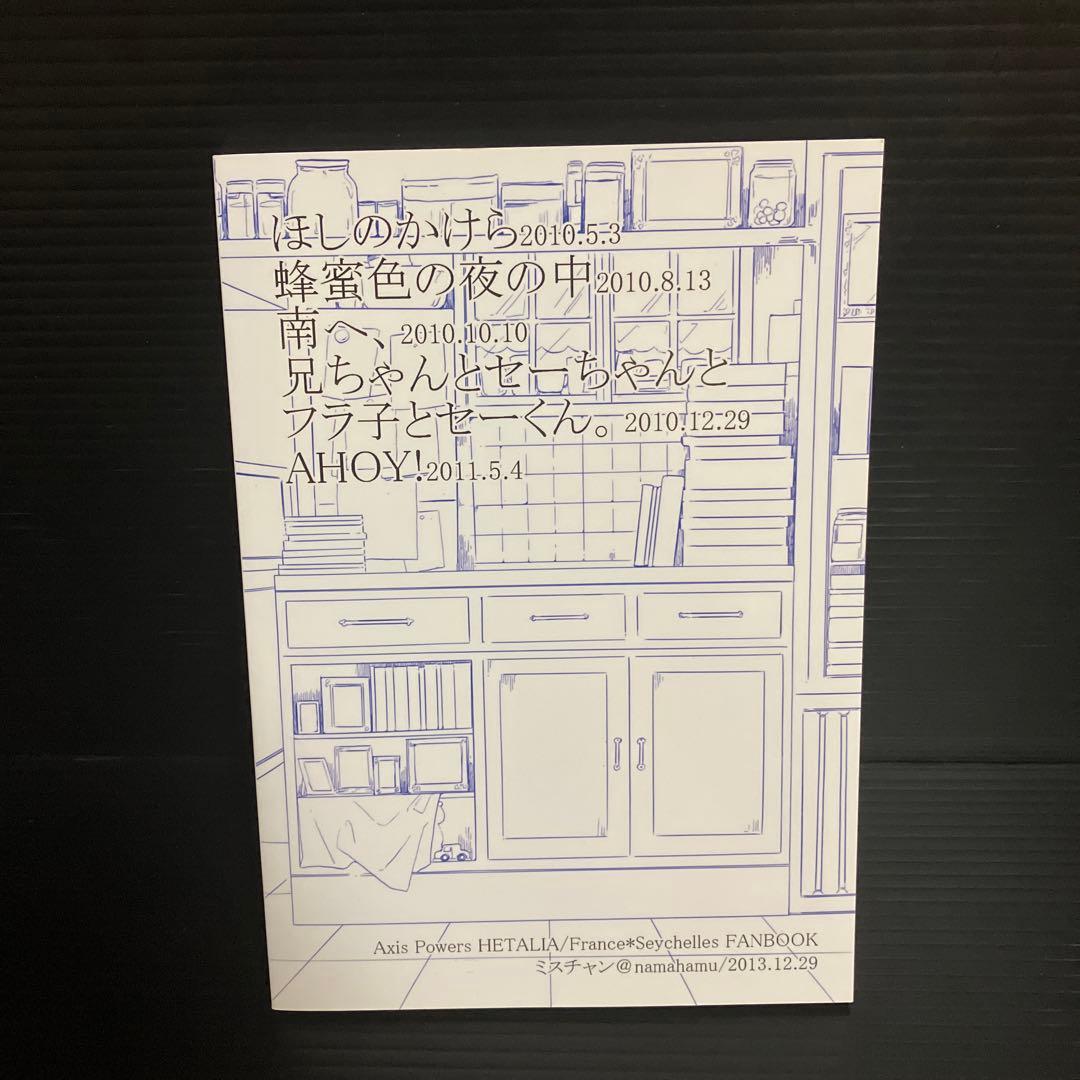 ほしのかけら2010.5.3
蜂蜜色の夜の中2010.8.13
南へ、2010.10.10
兄ちゃんとセーちゃんと
フラ子とセーくん。2010.12.29
AHOY!2011.5.4
Axis Powers HETALIA/France*Seychelles FANBOOK
ミスチャン@namahamu/2013.12.29